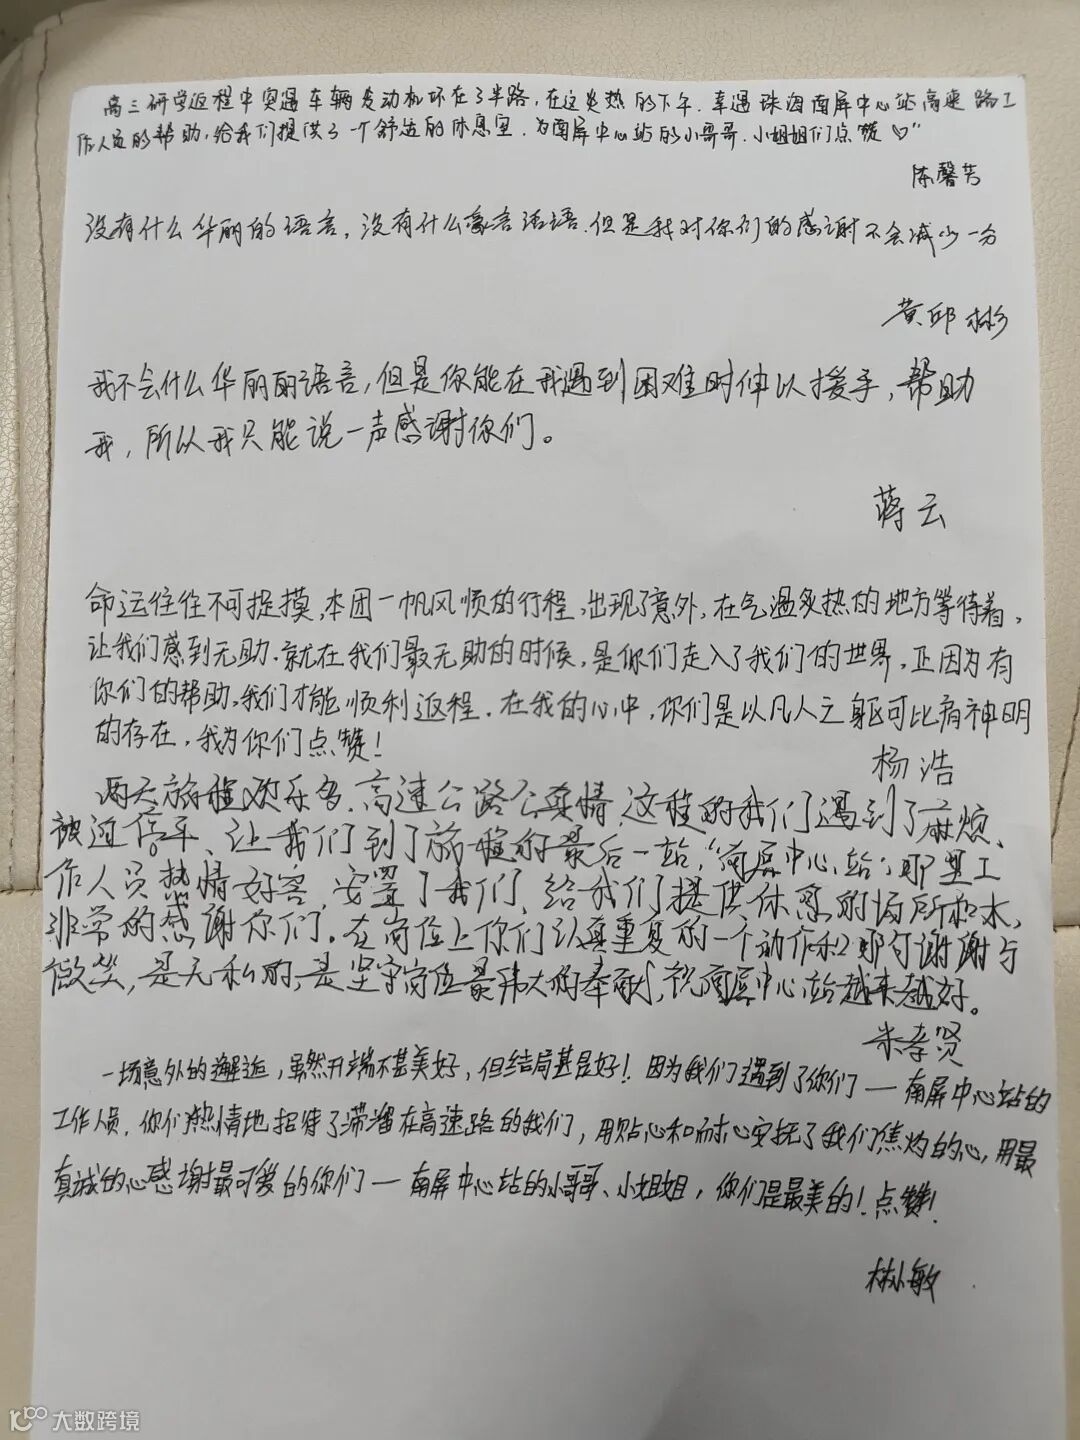 高三研学返程中突遇车辆发动机坏在了半路,在这炎热的下午.幸遇珠海南屏中心站高速路工
作人员的帮助,给我们提供了一个舒适的休息室.为南屏中心站的小哥哥.小姐姐们点赞♡"
陈馨芳
没有什么华丽的语言,没有什么豪言话语.但是我对你们的感谢不会减少一分
黄邱彬
我不会什么华丽丽语言,但是你能在我遇到困难时伸以援手,帮助
我,所以我只能说一声感谢你们。
蒋云
命运往往不可捉摸,本团一帆风顺的行程,出现了意外,在气温炙热的地方等待着,
让我们感到无助.就在我们最无助的时候,是你们走入了我们的世界,正因为有
你们的帮助,我们才能顺利返程.在我的心中,你们是以凡人之躯可比肩神明
的存在,我为你们点赞!
杨浩
两天旅程欢乐多.高速公路公真情,这程的我们遇到了麻烦、
被迫停车、让我们到了旅程的最后一站,"南屏中心站",那里工
作人员热情好客,安置了我们,给我们提供休息的场所和水,
非常的感谢你们.在岗位上你们认真重复的一个动作和那句谢谢与
微笑,是无私的,是坚守岗位最伟大的奉献,祝南屏中心站越来越好。
朱孝贤
一场意外的邂逅,虽然开端不甚美好,但结局甚是好!因为我们遇到了你们—南屏中心站的
工作人员.你们热情地招待了滞溜在高速路的我们,用贴心和耐心安抚了我们焦灼的心,用最
真诚的心感谢最可爱的你们—南屏中心站的小哥哥、小姐姐,你们是最美的!点赞!
林小敏
大数跨境